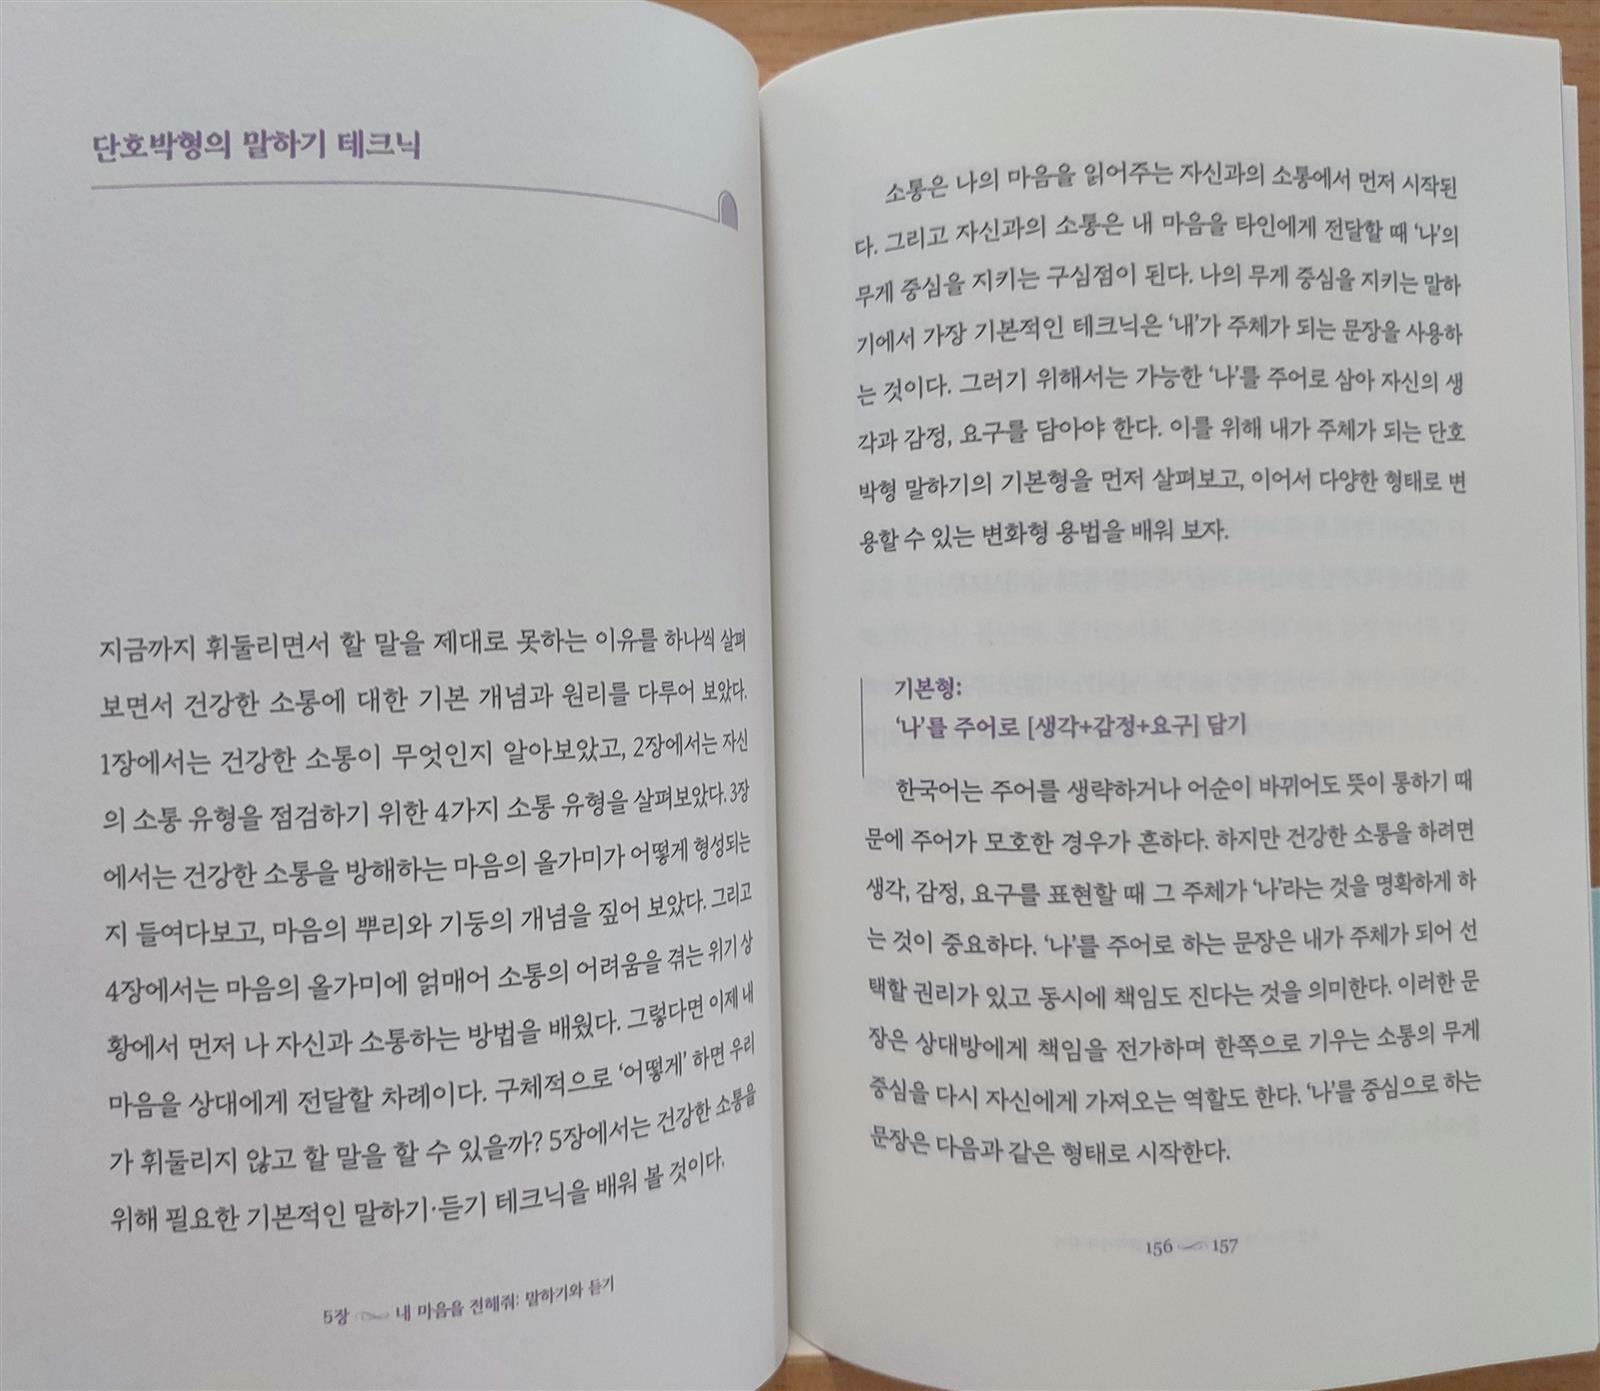 단호박형의 말하기 테크닉
지금까지 휘둘리면서 할 말을 제대로 못하는 이유를 하나씩 살펴
보면서 건강한 소통에 대한 기본 개념과 원리를 다루어 보았다.
1장에서는 건강한 소통이 무엇인지 알아보았고, 2장에서는 자신
의 소통 유형을 점검하기 위한 4가지 소통 유형을 살펴보았다. 3장
에서는 건강한 소통을 방해하는 마음의 올가미가 어떻게 형성되는
지 들여다보고, 마음의 뿌리와 기둥의 개념을 짚어 보았다. 그리고
4장에서는 마음의 올가미에 얽매어 소통의 어려움을 겪는 위기 상
황에서 먼저 나 자신과 소통하는 방법을 배웠다. 그렇다면 이제 내
마음을 상대에게 전달할 차례이다. 구체적으로 ‘어떻게’ 하면 우리
가 휘둘리지 않고 할 말을 할 수 있을까? 5장에서는 건강한 소통을
위해 필요한 기본적인 말하기·듣기 테크닉을 배워 볼 것이다.
5장 내 마음을 전해줘: 말하기와 듣기
소통은 나의 마음을 읽어주는 자신과의 소통에서 먼저 시작된
다. 그리고 자신과의 소통은 내 마음을 타인에게 전달할 때 ‘나’의
무게 중심을 지키는 구심점이 된다. 나의 무게 중심을 지키는 말하
기에서 가장 기본적인 테크닉은 ‘내’가 주체가 되는 문장을 사용하
는 것이다. 그러기 위해서는 가능한 ‘나’를 주어로 삼아 자신의 생
각과 감정, 요구를 담아야 한다. 이를 위해 내가 주체가 되는 단호
박형 말하기의 기본형을 먼저 살펴보고, 이어서 다양한 형태로 변
용할 수 있는 변화형 용법을 배워 보자.
기본형:
‘나’를 주어로 [생각+감정+요구] 담기
한국어는 주어를 생략하거나 어순이 바뀌어도 뜻이 통하기 때
문에 주어가 모호한 경우가 흔하다. 하지만 건강한 소통을 하려면
생각, 감정, 요구를 표현할 때 그 주체가 ‘나’라는 것을 명확하게 하
는 것이 중요하다. ‘나’를 주어로 하는 문장은 내가 주체가 되어 선
택할 권리가 있고 동시에 책임도 진다는 것을 의미한다. 이러한 문
장은 상대방에게 책임을 전가하며 한쪽으로 기우는 소통의 무게
중심을 다시 자신에게 가져오는 역할도 한다. ‘나’를 중심으로 하는
문장은 다음과 같은 형태로 시작한다.
156 157